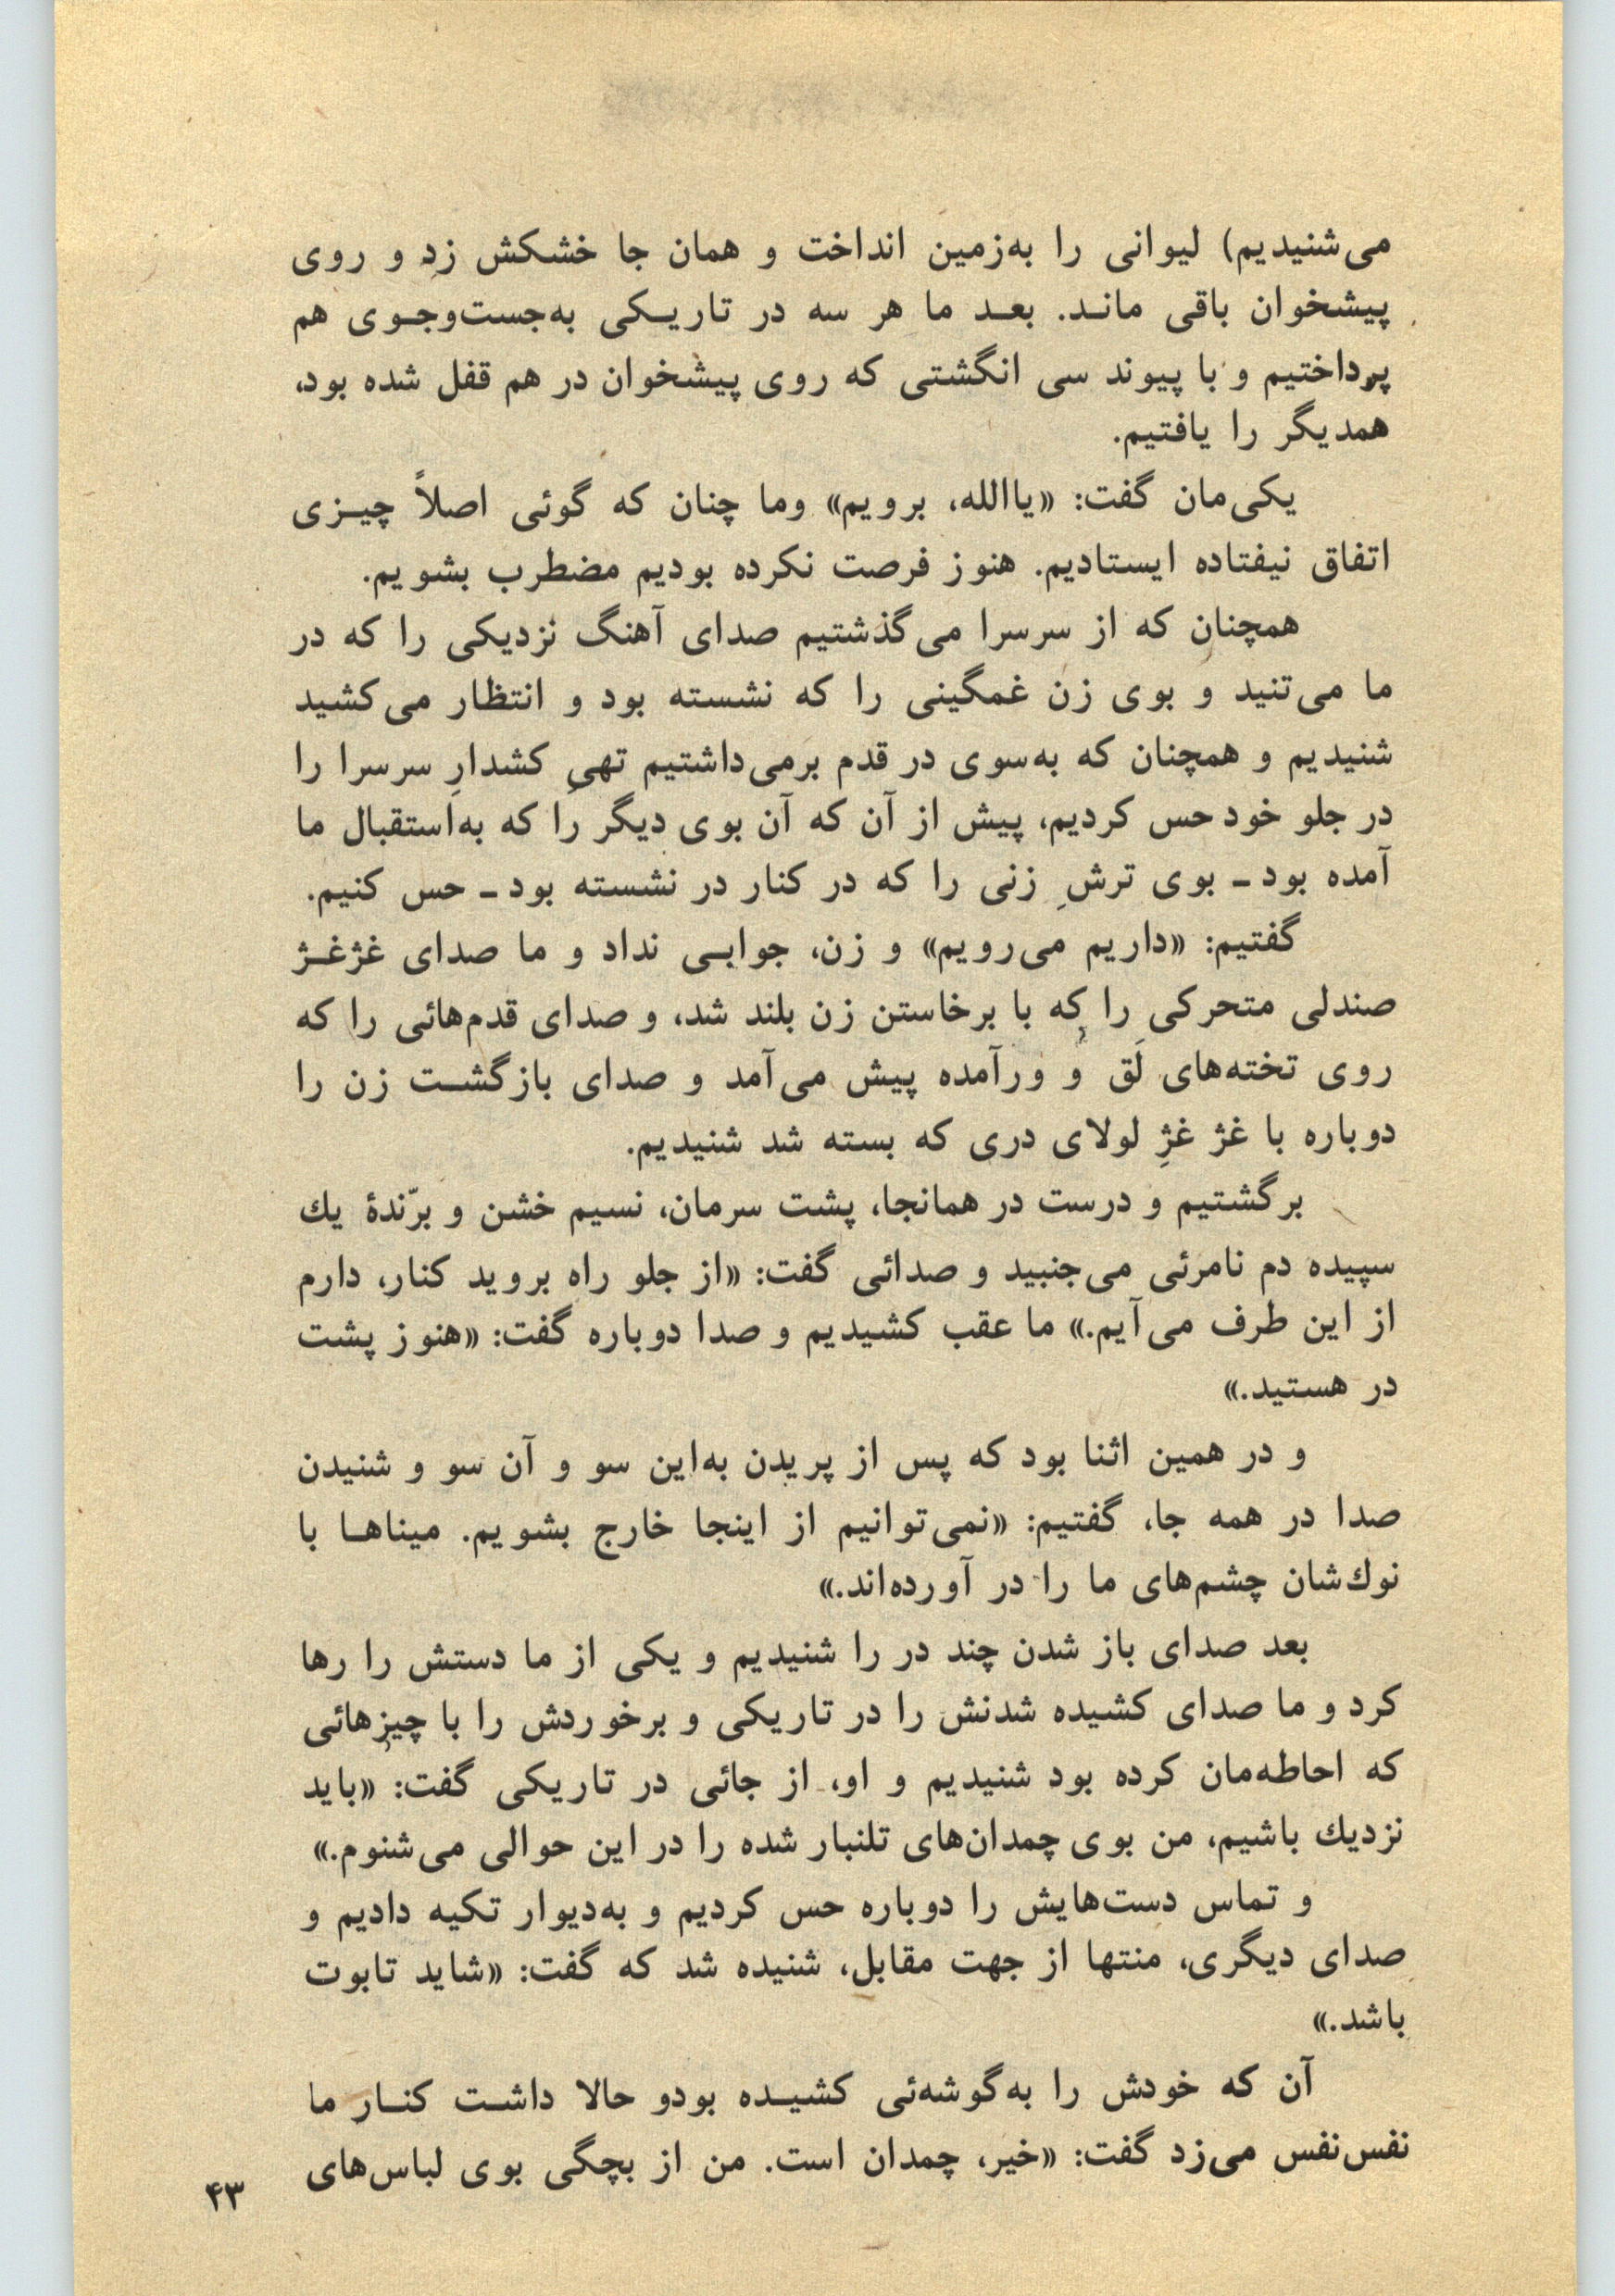 می‌شنیدیم) لیوانی را به‌زمین انداخت و همان جا خشکش زد و روی
پیشخوان باقی مانـد. بعـد ما هر سه در تاریـکی به‌جست‌وجـوی هم
پرداختیم و با پیوند سی انگشتی که روی پیشخوان در هم قفل شده بود،
همدیگر را یافتیم.
یکی‌مان گفت: «یاالله، برویم» وما چنان که گوئی اصلاً چیـزی
اتفاق نیفتاده ایستادیم. هنوز فرصت نکرده بودیم مضطرب بشویم.
همچنان که از سرسرا می‌گذشتیم صدای آهنگ نزدیکی را که در
ما می‌تنید و بوی زن غمگینی را که نشسته بود و انتظار می‌کشید
شنیدیم و همچنان که به‌سوی در قدم برمی‌داشتیم تهیِ کشدارِ سرسرا را
در جلو خود حس کردیم، پیش از آن که آن بوی دیگر را که به‌استقبال ما
آمده بود ـ بوی ترشِ زنی را که در کنار در نشسته بود ـ حس کنیم.
گفتیم: «داریم می‌رویم» و زن، جوابـی نداد و ما صدای غژغـژ
صندلی متحرکی را که با برخاستن زن بلند شد، و صدای قدم‌هائی را که
روی تخته‌های لَق و ورآمده پیش می‌آمد و صدای بازگشـت زن را
دوباره با غژ غژِ لولای دری که بسته شد شنیدیم.
برگشتیم و درست در همانجا، پشت سرمان، نسیم خشن و برّندهٔ یك
سپیده دم نامرئی می‌جنبید و صدائی گفت: «از جلو راه بروید کنار، دارم
از این طرف می‌آیم.» ما عقب کشیدیم و صدا دوباره گفت: «هنوز پشت
در هستید.»
و در همین اثنا بود که پس از پریدن به‌این سو و آن سو و شنیدن
صدا در همه جا، گفتیم: «نمی‌توانیم از اینجا خارج بشویم. میناهـا با
نوك‌شان چشم‌های ما را در آورده‌اند.»
بعد صدای باز شدن چند در را شنیدیم و یکی از ما دستش را رها
کرد و ما صدای کشیده شدنش را در تاریکی و برخوردش را با چیزهائی
که احاطه‌مان کرده بود شنیدیم و او، از جائی در تاریکی گفت: «باید
نزدیك باشیم، من بوی چمدان‌های تلنبار شده را در این حوالی می‌شنوم.»
و تماس دست‌هایش را دوباره حس کردیم و به‌دیوار تکیه دادیم و
صدای دیگری، منتها از جهت مقابل، شنیده شد که گفت: «شاید تابوت
باشد.»
آن که خودش را به‌گوشه‌ئی کشیـده بودو حالا داشـت کنـار ما
نفس‌نفس می‌زد گفت: «خیر، چمدان است. من از بچگی بوی لباس‌های
۴۳